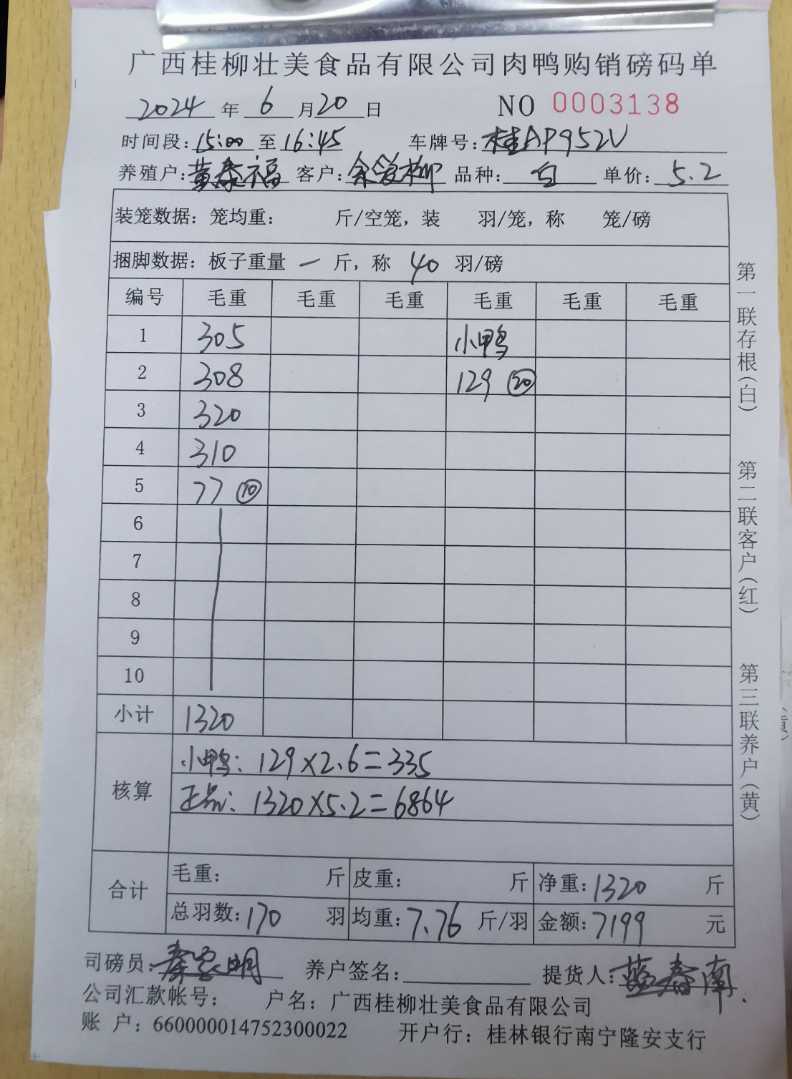 广西桂柳壮美食品有限公司肉鸭购销磅码单
2024 年 6 月 20 日 NO 0003138
时间段: 15:00 至 16:45 车牌号: 桂AP952U
养殖户: 黄泰福 客户: 柳 品种: 白 单价: 5.2
装笼数据: 笼均重: 斤/空笼, 装 羽/笼, 称 笼/磅
捆脚数据: 板子重量 一 斤, 称 40 羽/磅
编号 毛重 毛重 毛重 毛重 毛重 毛重
1 305 小鸭
2 308 129 20
3 320
4 310
5 77 10
6
7
8
9
10
小计 1320
核算 小鸭: 129×2.6=335
正品: 1320×5.2=6864
合计 毛重: 斤 皮重: 斤 净重: 1320 斤
总羽数: 170 羽 均重: 7.76 斤/羽 金额: 7199 元
司磅员: 秦家明 养户签名: 提货人: 蓝春南
公司汇款帐号: 户名: 广西桂柳壮美食品有限公司
账 户: 660000014752300022 开户行: 桂林银行南宁隆安支行
第一联存根(白) 第二联客户(红) 第三联养户(黄)